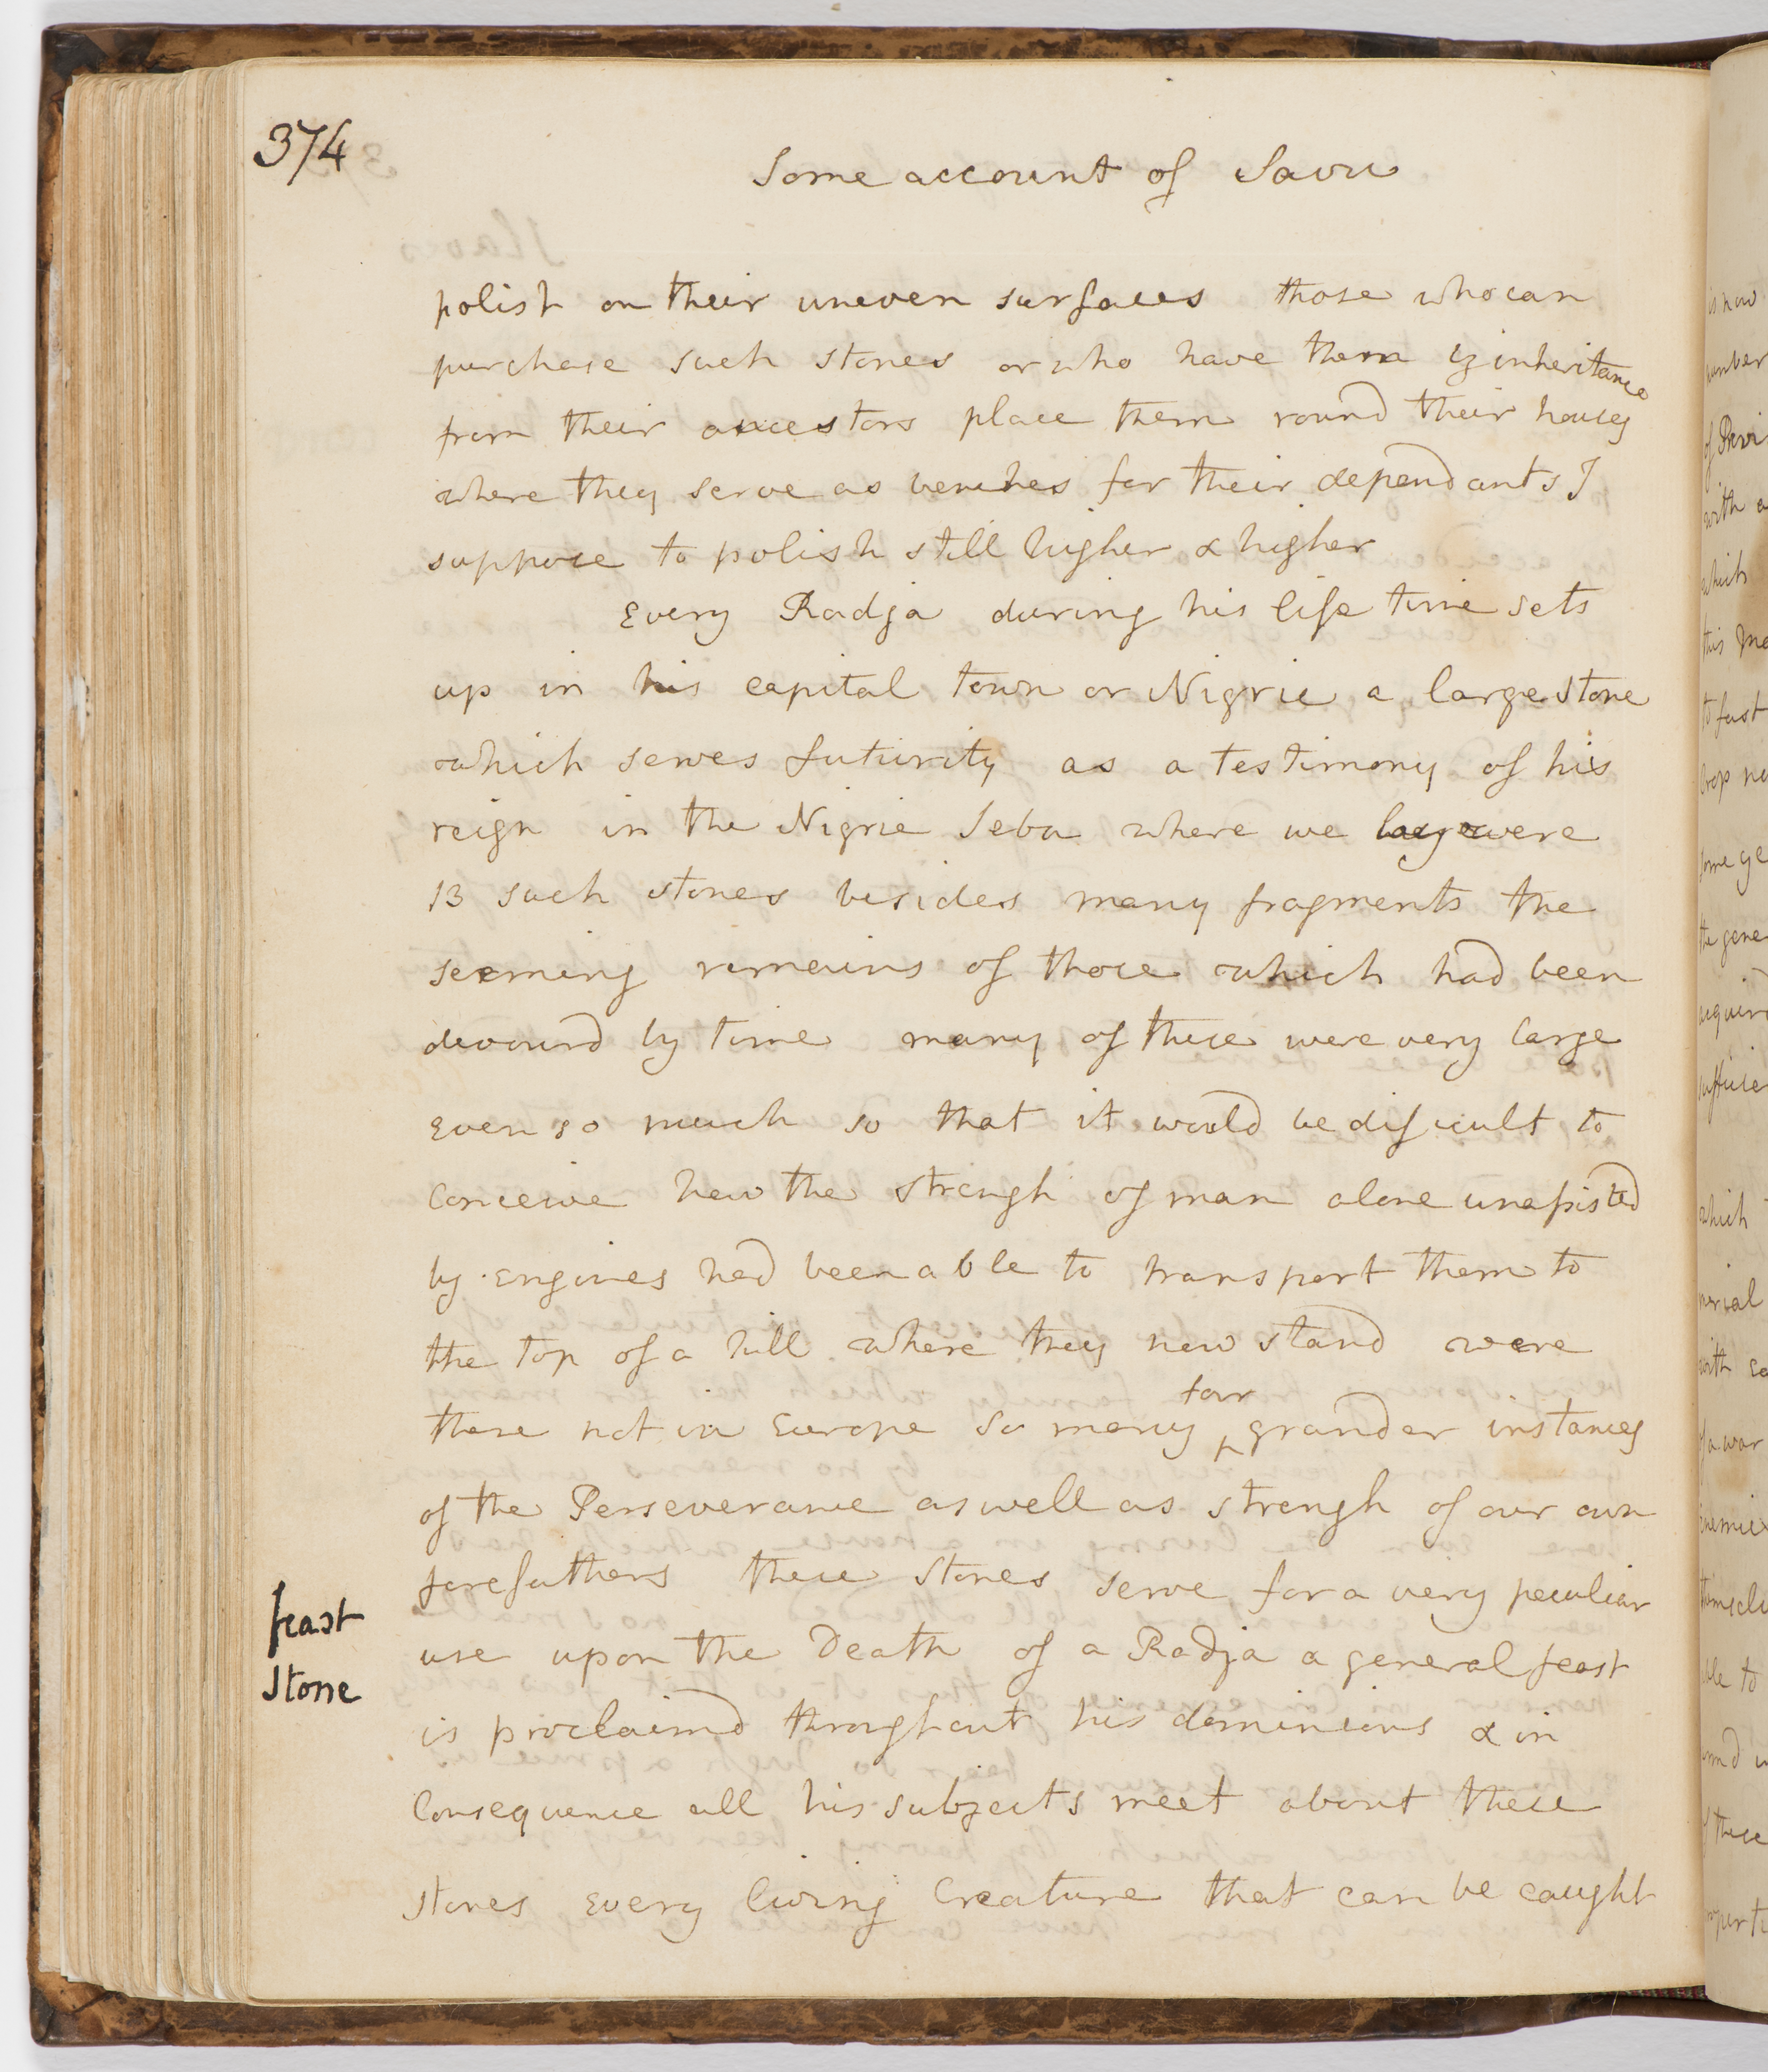 374
Some account of Savu
polish on their uneven surfaces those who can
purchase such stones or who have them by inheritance
from their ancestors place them round their houses
where they serve as benches for their dependants I
suppose to polish still higher & higher
Every Radja during his life time sets
up in his capital town or Nigrie a large stone
which serves futurity as a testimony of his
reign in the Nigrie Seba where we lay were
13 such stones besides many fragments the
seeming remains of those which had been
devourd by time many of these were very large
Even so much so that it would be dificult to
Conceive how the strengh of man alone unassisted
by engines had been able to transport them to
the top of a hill where they now stand were
there not in Europe so many far grander instances
of the Perseverance as well as strengh of our own
forefathers these stones serve for a very peculiar
feast
Stone
use upon the Death of a Radja a general feast
is proclaimd throughout his dominions & in
Consequence all his subjects meet about these
stones Every living Creature that can be caught